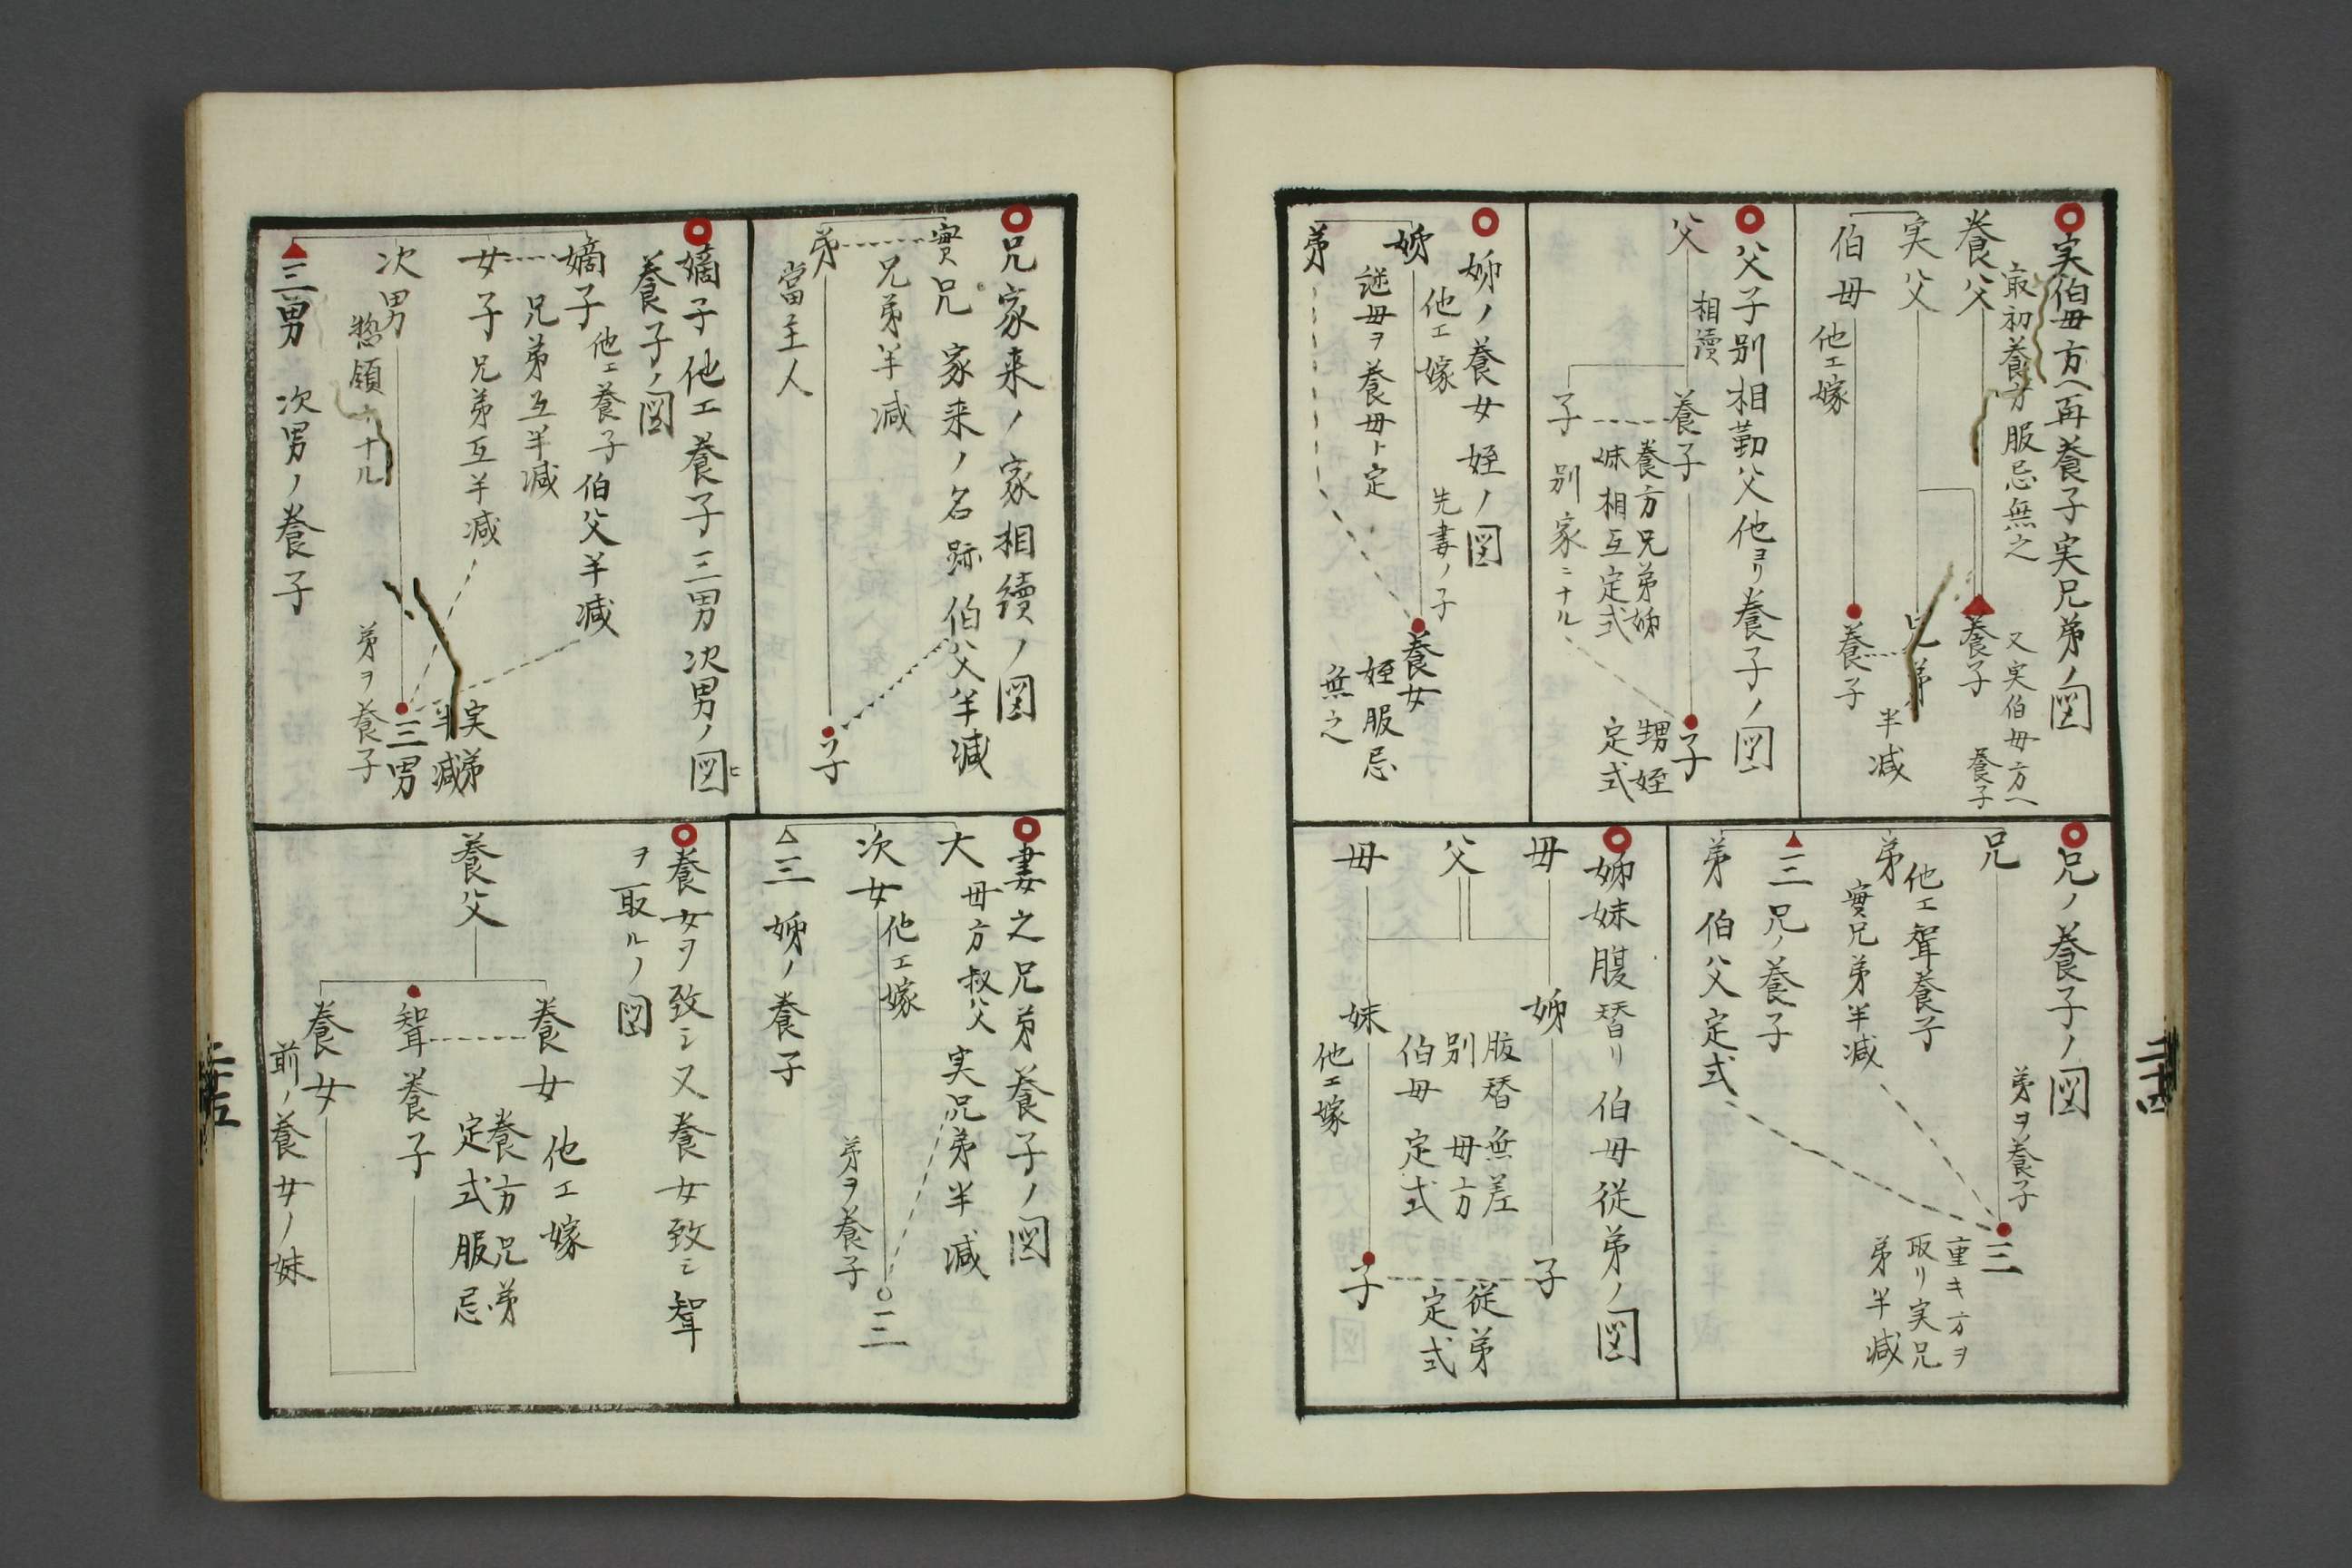 実伯母方ヘ再養子実兄弟ノ図
養父
最初養方服忌無之
養子
又実伯母方ヘ
養子
実父
兄弟
半減
伯母
他エ嫁
養子
父子別相勤父他ヨリ養子ノ図
父
相續
養子
養方兄弟姉
妹相互定式
子
甥姪
定式
子
別家ニナル
姉ノ養女姪ノ図
姉
他エ嫁
先妻ノ子
継母ヲ養母ト定
養女
姪服忌
無之
弟
兄ノ養子ノ図
兄
弟ヲ養子
三
重キ方ヲ
取リ実兄
弟半減
弟
他エ聟養子
實兄弟半減
三
兄ノ養子
弟
伯父定式
姉妹腹替リ伯母従弟ノ図
母
姉
子
父
腹替無差
別 母方
伯母定式
従弟
定式
母
妹
他エ嫁
子
二十四
兄家来ノ家相續ノ図
實兄
家来ノ名跡
伯父半減
兄弟半減
弟
當主人
子
嫡子他エ養子三男次男ノ
養子ノ図
嫡子
他エ養子
伯父半減
兄弟互半減
女子
兄弟互半減
実弟
半減
次男
惣領ナル
弟ヲ養子
三男
三男
次男ノ養子
妻之兄弟養子ノ図
大
母方叔父
実兄弟半減
次女
他エ嫁
弟ヲ養子
三
三
姉ノ養子
養女ヲ致シ又養女致シ聟
ヲ取ルノ図
養父
養女
他エ嫁
養方兄弟
定式服忌
聟養子
養女
前ノ養女ノ妹
二十五